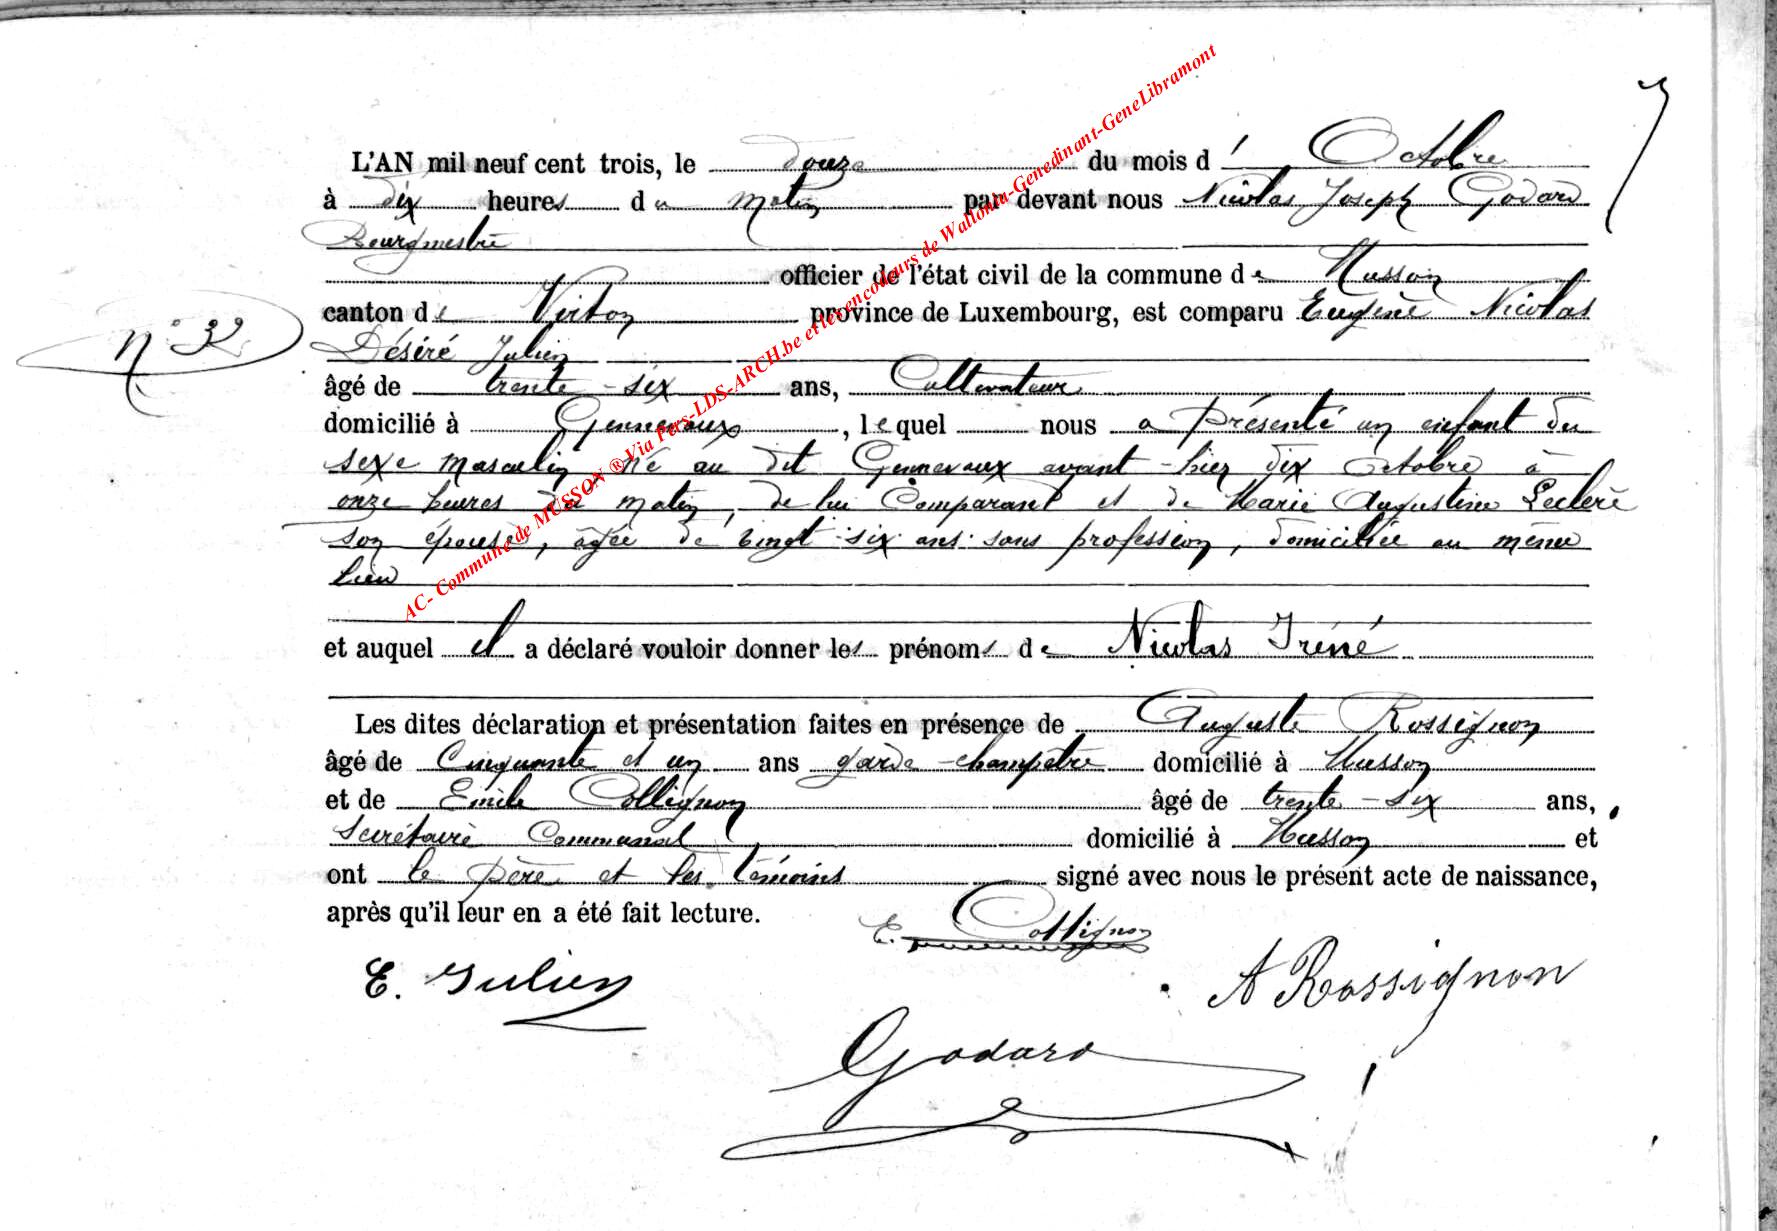 L'AN mil neuf cent trois, le douze du mois d' Octobre
à dix heures du matin par devant nous Nicolas Joseph Godard
Bourgmestre
officier de l'état civil de la commune de Musson
N° 32
canton de Virton province de Luxembourg, est comparu Eugène Nicolas
Désiré Julien
âgé de trente-six ans, Cultivateur
domicilié à Gennevaux, lequel nous a présenté un enfant du
sexe masculin né au dit Gennevaux avant-hier dix Octobre à
onze heures du matin, de lui Comparant et de Marie Augustine Leclère
son épouse, âgée de vingt-six ans sans profession, domiciliée au même
lieu
et auquel il a déclaré vouloir donner les prénoms de Nicolas Iréné
Les dites déclaration et présentation faites en présence de Auguste Rossignon
âgé de Cinquante et un ans garde-champêtre domicilié à Musson
et de Emile Collignon âgé de trente-six ans,
Secrétaire Communal domicilié à Musson et
ont le père et les témoins signé avec nous le présent acte de naissance,
après qu'il leur en a été fait lecture.
E. Collignon
E. Julien
A Rossignon
Godard
AC- Commune de MUSSON ® Via Pers-LDS-ARCH.be et les encodeurs de Wallonia-Genedinant-GeneLibramont